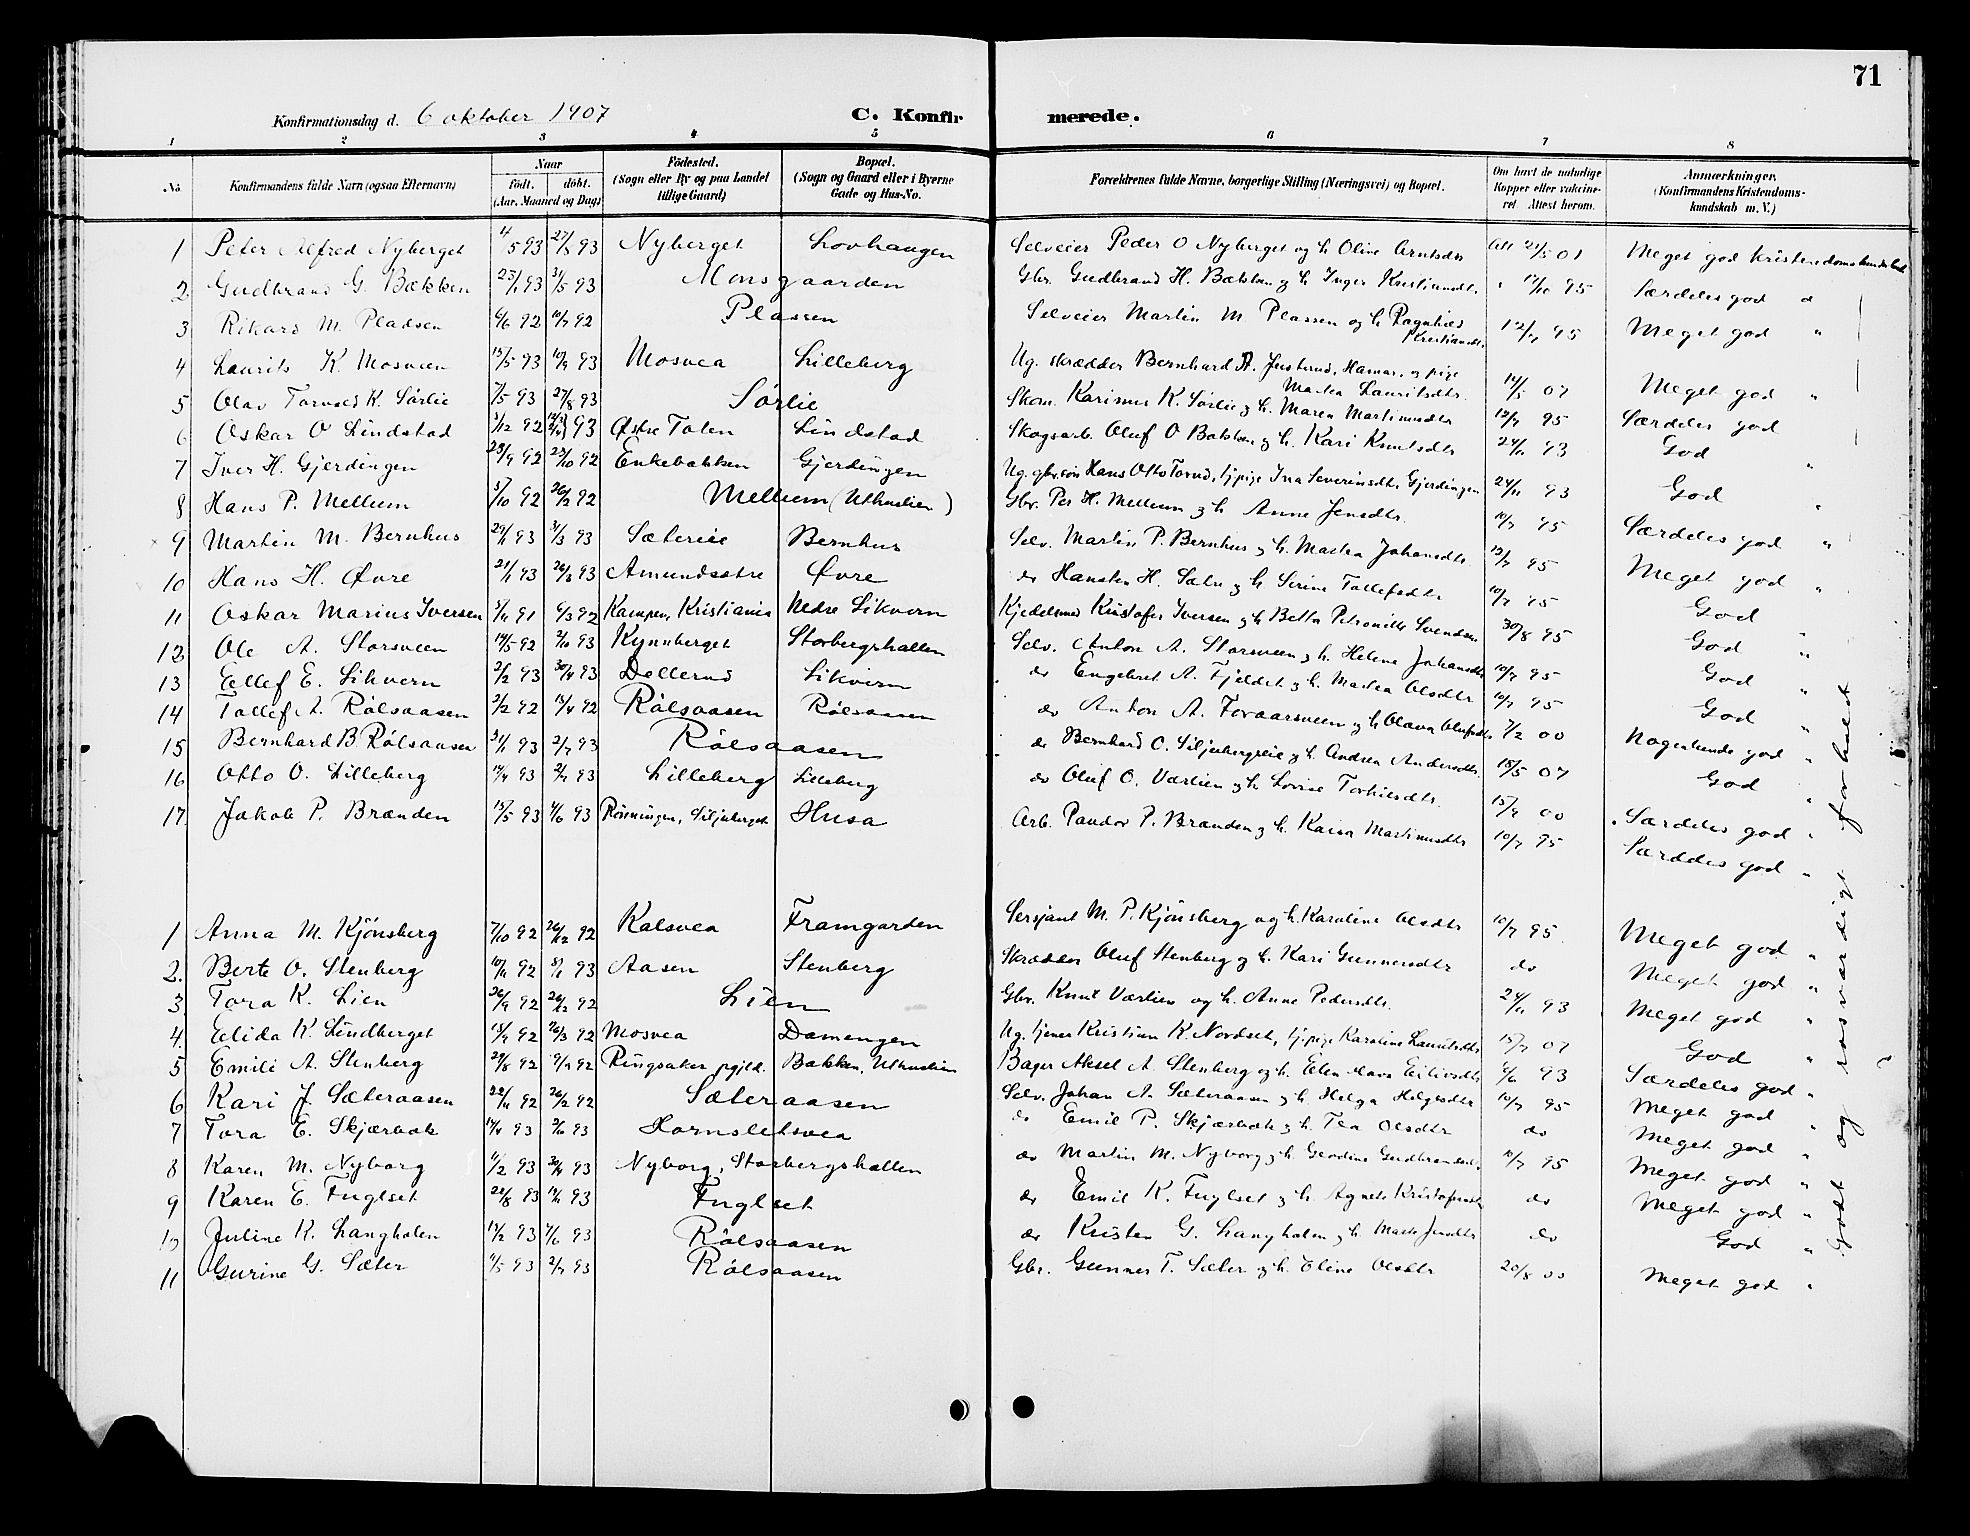 71
Konfirmationsdag d. 6 oktober 1907
C. Konfirmerede.
1 2 3 4 5 6 7 8
No
Konfirmandens fulde Navn (ogsaa Efternavn)
Naar
født. døbt.
(Aar. Maaned og Dag)
Fødested.
(Sogn eller By og paa Landet
tillige Gaard)
Bopæl.
(Sogn og Gaard eller i Byerne
Gade og Hus-No.
Forældrenes fulde Navne, borgerlige Stilling (Næringsvei) og Bopæl.
Om havt de naturlige
Kopper eller vakcine-
ret Attest herom.
Anmærkninger.
(Konfirmandens Kristendoms-
kundskab m. V.)
1 Peter Alfred Nyberget 4/5 93 93 Nyberget Lovhaugen Selveier Peder O Nyberget og h. Oline Arntsdtr Att 21/5 01 Meget god kristendomskundskab
2 Gudbrand G. Bækken 93 31/5 93 Monsgaarden Gbr. Gudbrand H. Bækken og h. Inger Kristiansdtr. 95 Særdeles god
3 Rikard M. Pladsen 6/6 92 10/7 92 Plassen Selveier Martin M Plassen og h. Ragnhild
Kristiansdtr. 12/7 95 Meget god "
4 Laurits K. Mosveen 15/5 93 93 Mosvea Lilleberg Ug. skrædder Bernhard A. Justerud, Hamar, og pige
Martea Lauritsdtr 07 Meget god "
5 Olav Torvald K. Sørlie 7/5 93 27/8 93 Sørlie Skom. Karinus K. Sørlie og h. Maren Martinusdtr 12/7 95 Særdeles god
6 Oskar O Lindstad 92 93 Østre Toten Lindstad Skogsarb. Oluf O Bakken og h. Kari Knutsdtr 24/11 93 God "
7 Iver H. Gjerdingen 92 23/10 92 Enkebakken Gjerdingen Ug. gbr.søn Hans Otto Torud, tj.pige Ina Severinsdtr. Gjerdingen 24/11 93 God "
8 Hans P. Mellum 92 26/12 92 Mellum (Uthuslien) Gbr. Per H. Mellum og h. Anne Jensdtr. 10/7 95 Særdeles god "
9 Martin M. Bernhus 93 31/3 93 Sætereie Bernhus Selv. Martin P. Bernhus og h. Martea Johansdtr 12/7 95 Meget god "
10 Hans H. Øvre 21/1 93 26/3 93 Amundsætre Øvre do Hansten H. Sæter og h. Serine Tollefsdtr 10/7 95 God "
11 Oskar Marius Iversen 91 6/3 92 Kampen, Kristiania Nedre Sikvern Kjedelsmed Kristofer Iversen og h. Betta Petronille Svendsen 30/8 95 God "
12 Ole A. Storsveen 14/5 92 2/10 92 Kynnberget Storbergshallen Selv. Anton A. Storsveen og h. Helene Johansdtr 10/7 95 God "
13 Ellef E. Sikvern 2/2 93 30/4 93 Dellerud Sikvern do Engebret A. Fjeldet og h. Martea Olsdtr 10/7 95 God "
14 Tollef A. Rölsaasen 2/2 92 92 Rölsaasen Rölsaasen do Anton A. Foraarsveen og h. Olava Olufsdtr 7/2 00 Nogenlunde god "
15 Bernhard B. Rölsaasen 31/1 93 2/7 93 Rölsaasen do Bernhard O. Siljubergseie og h. Andrea Andersdtr. 15/5 07 God "
16 Otto O. Lilleberg 93 2/7 93 Lilleberg Lilleberg do Oluf O. Værlien og h. Lovise Torkilsdtr. 00 Særdeles god "
17 Jakob P. Brænden 15/5 93 93 Rönningen, Siljuberget Husa Arb. Pauder P. Brænden og h. Kaisa Martinusdtr 10/7 95 Særdeles god "
1 Anna M. Kjönsberg 7/10 92 26/12 92 Kalsvea Framgarden Sersjant M. P. Kjönsberg og h. Karoline Olsdtr 10/7 95 Meget god "
2. Berte O. Stenberg 10/11 92 93 Aasen Stenberg Skrædder Oluf Stenberg og h. Kari Gunnersdtr do Meget god "
3 Tora K. Lien 26/9 92 26/12 92 Lien Gbr. Knut Værlien og h. Anne Pedersdtr. 24/11 93 Meget god "
4. Elida K. Lindberget 92 92 Mosvea Damengen Ug. tjener Kristian K. Nordset, tj.pige Karoline Lauritsdtr 07 God "
5 Emili A. Stenberg 29/8 92 92 Ringsaker pgjld. Bakken, Uthuslien Bager Aksel A. Stenberg og h. Elen Mara Eilivsdtr 93 Særdeles god "
6 Kari J. Sæteraasen 22/11 92 26/12 92 Sæteraasen Selv. Johan A. Sæteraasen og h. Helga Helgesdtr 10/7 95 Meget god "
7 Tora E. Skjærbæk 93 93 Hornsletsvea do Emil P. Skjærbæk og h. Tea Olsdtr do Meget god "
8 Karen M. Nyborg 93 30/4 93 Nyborg, Storbergshallen do Martin M. Nyborg og h. Gerdine Gudbrandsdtr 95 Meget god "
9 Karen E. Fuglset 93 93 Fuglset do Emil K. Fuglset og h. Agnete Kristofersdtr do Meget god "
10 Juline K. Langholen 93 93 Rölsaasen do Kristen G. Langholen og h. Marte Jensdtr do God "
11 Gurine G. Sæter 93 2/7 93 Rölsaasen Gbr. Gunner T. Sæter og h. Oline Olsdtr 20/8 00 Meget god "
Godt og rosværdigt forhold